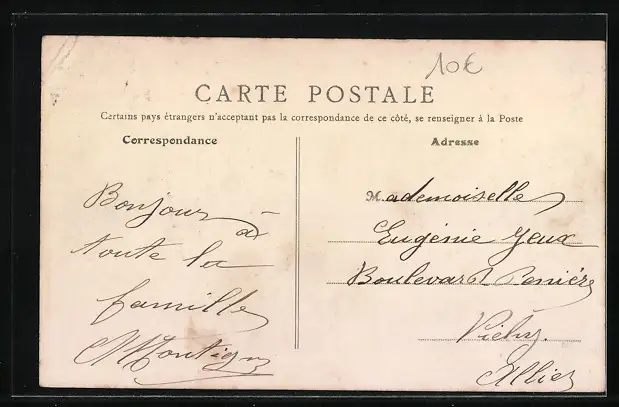 10€
CARTE POSTALE
Certains pays étrangers n'acceptent pas la correspondance de ce côté, se renseigner à la Poste
Correspondance
Bonjour à
toute la
famille
Montigny
Adresse
Mademoiselle
Eugénie Jeux
Boulevard
Vichy.
Allier